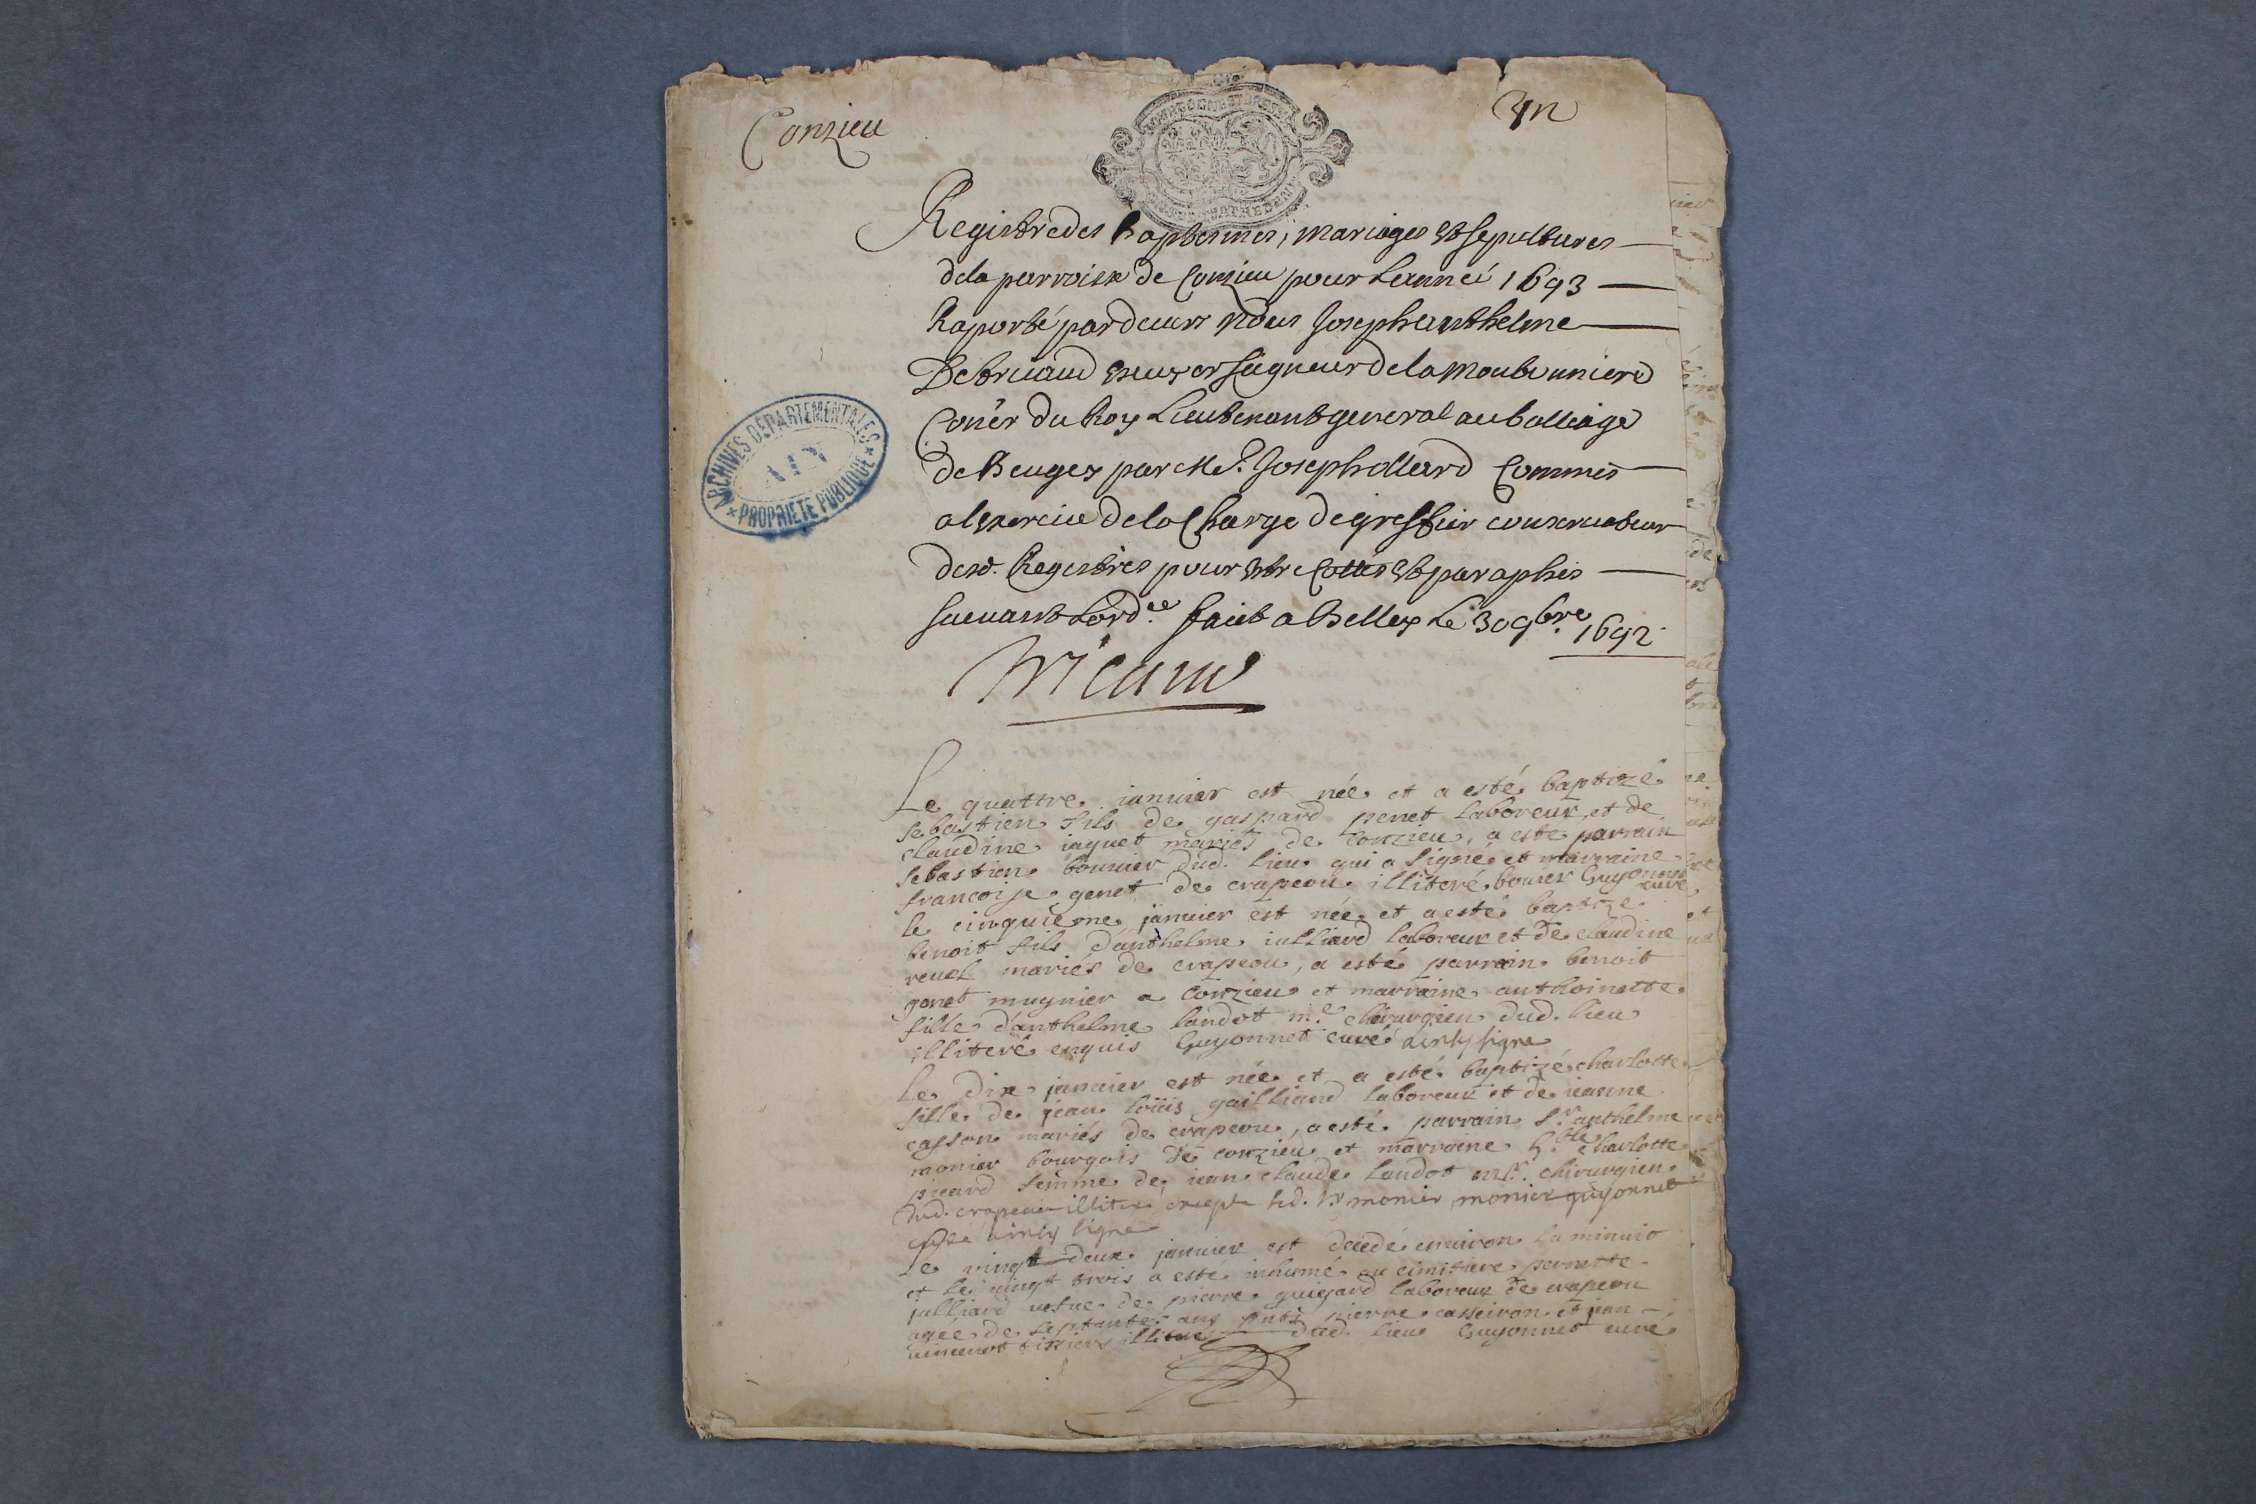 Conzieu
Un
Registre des baptesmes, mariages et sepultures
de la parroisse de Conzieu pour Lannéé 1693
Raporté pardevers Nous Joseph anthelme
De bruaud escuyer seigneur de la
Coner du Roy Lieutenant general au balliage
De Beugey par Me. Joseph Commis
a lexercice de la Charge de greffier conservateur
desd. Registres pour estre Cottés et paraphés
suivant Lord.ce faict a Belley Le 30 9bre. 1692
ARCHIVES DEPARTEMENTALES
AIN
* PROPRIETE PUBLIQUE *
Le quattre ianvier est née et a esté baptizé
sebastien fils de gaspard penet laboreur, et de
claudine iaquet mariés de Conzieu, a esté parrain
sebastien bouvier dud. lieu qui a signé et marraine
francoise genet de crapeou illiteré. bouver Guyonnet
curé
le cinquième janvier est née et a esté baptizé
benoit fils d'anthelme iulliard laboreur et de claudine
revel mariés de crapeou, a esté parrain benoit
genet mugnier a Conzieu et marraine anthoinette
fille d'anthelme landot m.e chirurgien dud. lieu
illiteré enquis Guyonnet curé ainsy signe
Le dix janvier est née et a esté baptizé charlotte
fille de jean loüis gailliand laboreur et de ieanne
casson mariés de crapeou, a esté parrain S.r anthelme
monier bourgois de conzieu et marraine h.ble charlotte
picard femme de iean claude landot m.e chirurgien
dud. crapeou illiteré excepté led. Sr monier monier guyonnet
curé ainsy signe
Le vingt deux janvier est décédé environ la minuit
et le vingt trois a esté inhumé au cimitiere pernette
julliard vefve de pierre guigard laboreur de crapeou
agée de septante ans pnts pierre casseiron et jean
vincent tissiers illiteré dud. lieu Guyonnet curé